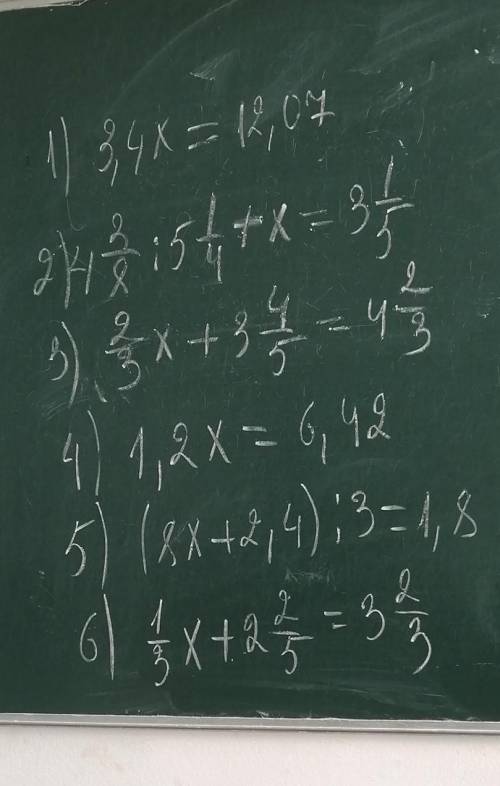 1) 3,4x = 12,07
2) 4 3/8 : 5 1/4 + x = 3 1/5
3) 2/3 x + 3 4/5 = 4 2/3
4) 1,2x = 6,42
5) (8x + 2,4) : 3 = 1,8
6) 1/3 x + 2 2/5 = 3 2/3